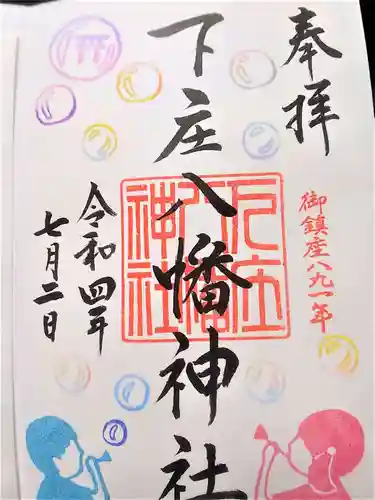 奉拝
御鎮座八九一年
下庄八幡神社
下庄八幡神社
令和四年
七月二日